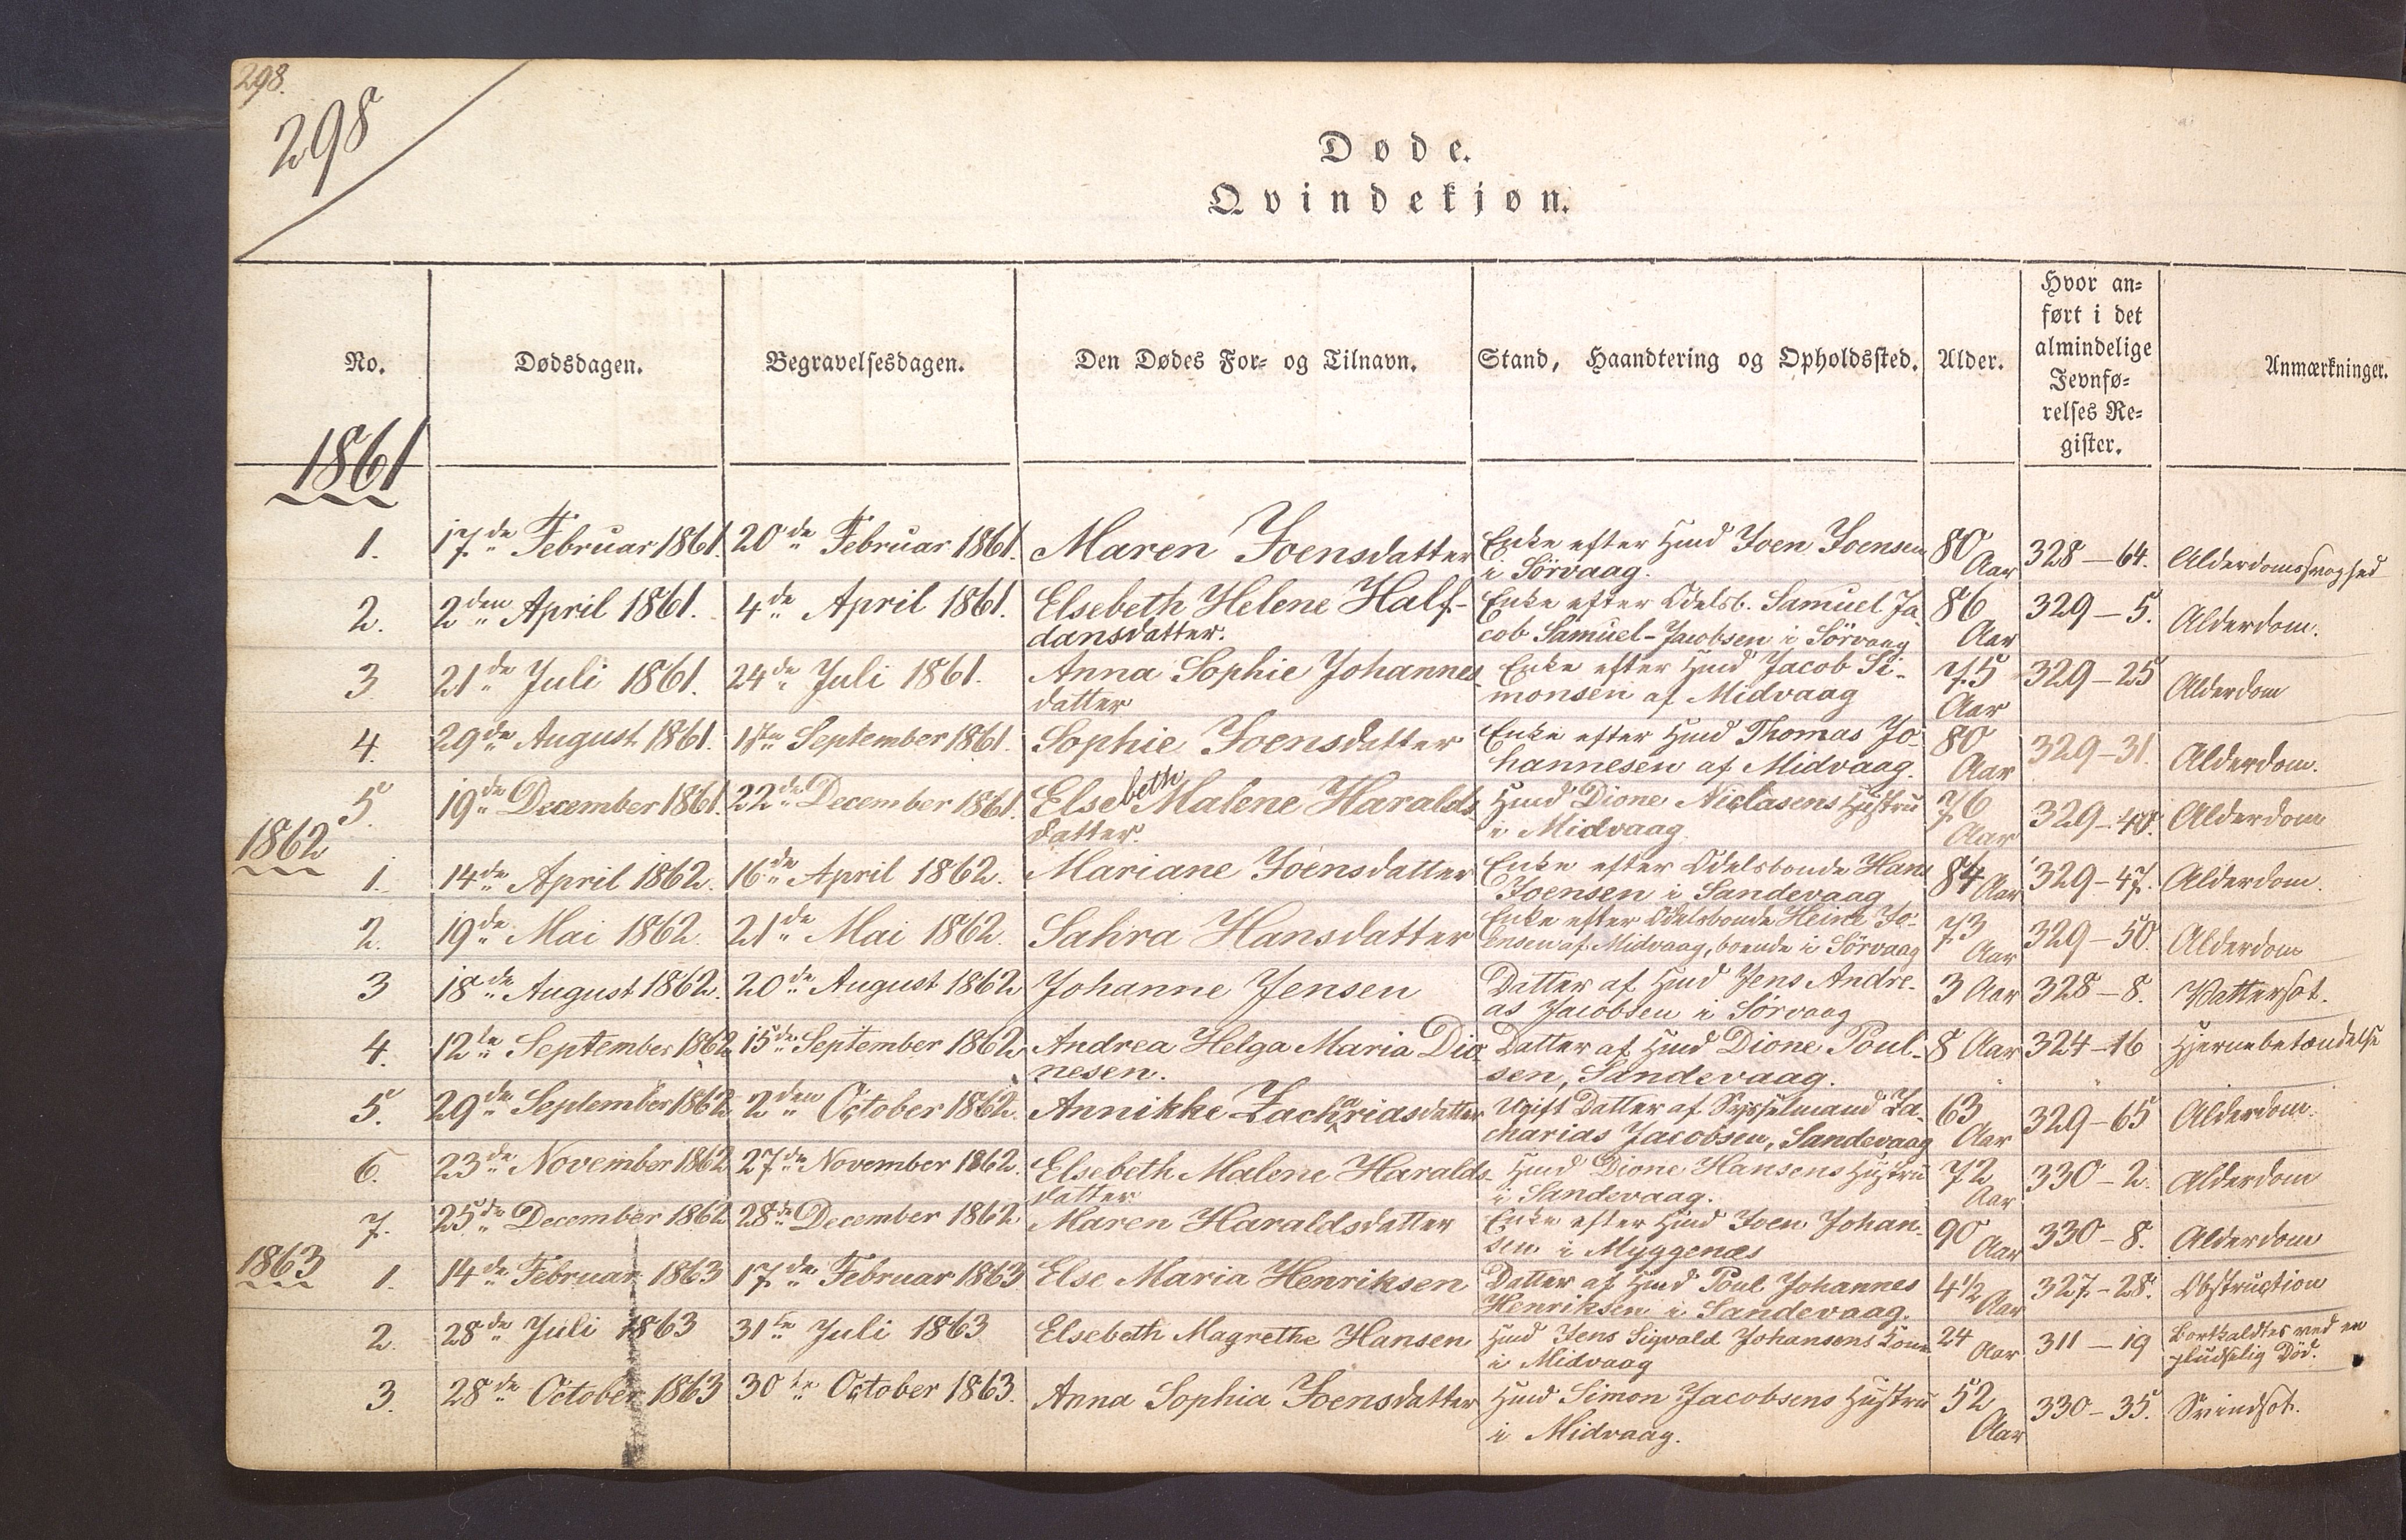 298.
298
Døde.
Qvindekjøn.
No.
Dødsdagen.
Begravelsesdagen.
Den Dødes For- og Tilnavn.
Stand, Haandtering og Opholdssted.
Alder.
Hvor an-
ført i det
almindelige
Jevnfø-
relses Re-
gister.
Anmærkninger.
1861
1. 17de Februar 1861. 20de Februar 1861. Maren Joensdatter Enke efter Hmd Joen Joensen 80 Aar 328-64. Alderdomssvaghed
i Sörvaag.
2. 2den April 1861. 4de April 1861. Elsebeth Helene Half- Enke efter Odelsb. Samuel Ja- 86 Aar 329-5. Alderdom.
dansdatter. cob Samuel-Jacobsen i Sörvaag
3 21de Juli 1861. 24de Juli 1861. Anna Sophie Johannes- Enke efter Hmd Jacob Si- 75 Aar 329-25 Alderdom
datter monsen af Midvaag
4. 29de August 1861. 1ste September 1861. Sophie Joensdatter Enke efter Hmd Thomas Jo- 80 Aar 329-31. Alderdom.
hannesen af Midvaag.
5. 19de December 1861. 22de December 1861. Elsebeth Malene Haralds- Hmd Dione Niclasens Hustru 76 Aar 329-40. Alderdom
datter. i Midvaag
1862
1. 14de April 1862. 16de April 1862. Mariane Joensdatter Enke efter Odelsbonde Hans 84 Aar 329-47. Alderdom.
Joensen i Sandevaag
2. 19de Mai 1862. 21de Mai 1862. Sahra Hansdatter Enke efter Odelsbonde Heine Jo- 73 Aar 329-50. Alderdom
ensen af Midvaag, boende i Sörvaag
3 18de August 1862. 20de August 1862 Johanne Jensen Datter af Hmd Jens Andre- 3 Aar 328-8. Vattersot.
as Jacobsen i Sörvaag
4. 12te September 1862 15de September 1862 Andrea Helga Maria Dio- Datter af Hmd Dione Poul- 8 Aar 324-16 Hjernebetændelse
nesen. sen, Sandevaag.
5. 29de September 1862 2den October 1862. Annikke Zachariasdatter Ugift Datter af Sysselmand Za- 63 Aar 329-65 Alderdom.
charias Jacobsen, Sandevaag
6. 23de November 1862 27de November 1862. Elsebeth Malene Haralds- Hmd Dione Hansens Hustru 72 Aar 330-2. Alderdom
datter i Sandevaag.
7. 25de December 1862 28de December 1862 Maren Haraldsdatter Enke efter Hmd Joen Johan- 90 Aar 330-8. Alderdom
sen i Myggenæs
1863
1. 14de Februar 1863 17de Februar 1863 Else Maria Henriksen Datter af Hmd Poul Johannes 4 1/2 Aar 327-28. Obstruction
Henriksen i Sandevaag.
2. 28de Juli 1863 31te Juli 1863 Elsebeth Magrethe Hansen Hmd Jens Sigvald Johansens Kone 24 Aar 311-19 Bortkaldtes ved en
i Midvaag pludselig Död.
3. 28de October 1863 30te October 1863. Anna Sophia Joensdatter Hmd Simon Jacobsens Hustru 52 Aar 330-35. Svindsot.
i Midvaag.